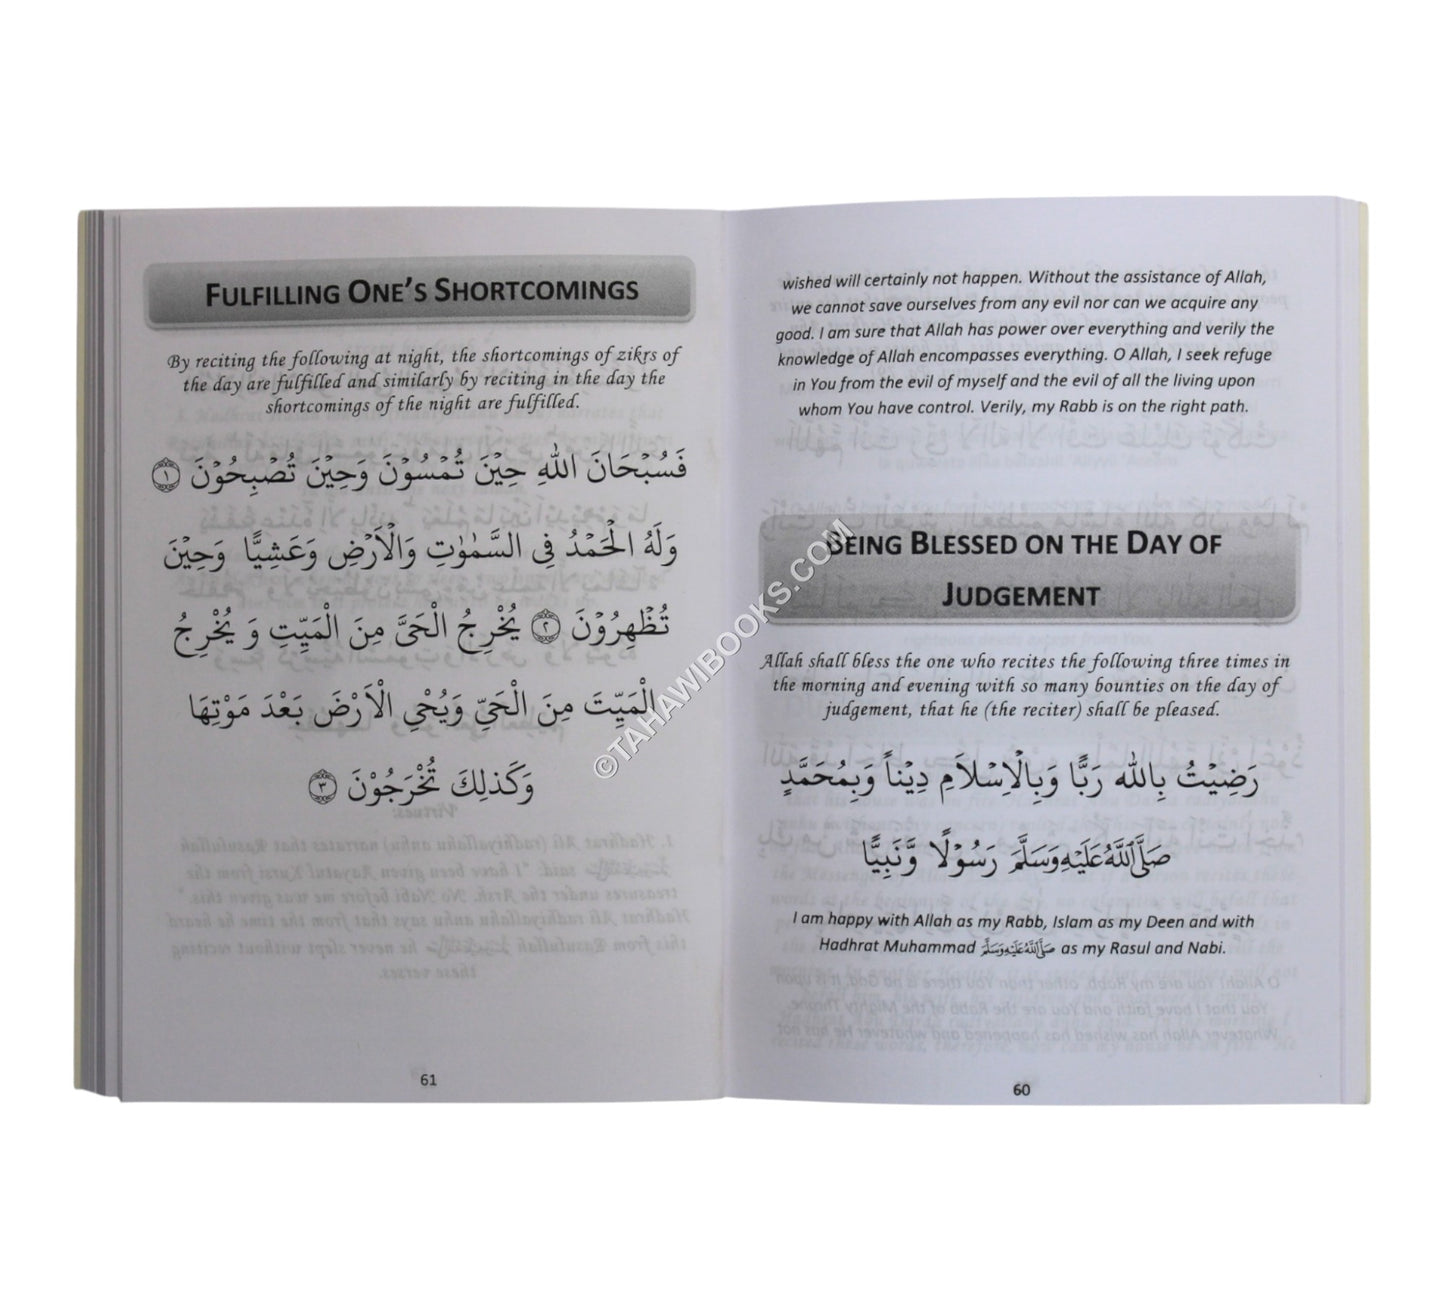 wished will certainly not happen. Without the assistance of Allah,
we cannot save ourselves from any evil nor can we acquire any
good. I am sure that Allah has power over everything and verily the
knowledge of Allah encompasses everything. O Allah, I seek refuge
in You from the evil of myself and the evil of all the living upon
whom You have control. Verily, my Rabb is on the right path.
BEING BLESSED ON THE DAY OF
JUDGEMENT
Allah shall bless the one who recites the following three times in
the morning and evening with so many bounties on the day of
judgement, that he (the reciter) shall be pleased.
رَضِيْتُ بِالله رَبًّا وَبِالْاِسْلَامِ دِيْناً وَبِمُحَمَّدٍ
صَلَّى اللَّهُ عَلَيْهِ وَسَلَّمَ رَسُوْلًا وَّنَبِيًّا
I am happy with Allah as my Rabb, Islam as my Deen and with
Hadhrat Muhammad صَلَّى اللَّهُ عَلَيْهِ وَسَلَّمَ as my Rasul and Nabi.
60
FULFILLING ONE'S SHORTCOMINGS
By reciting the following at night, the shortcomings of zikrs of
the day are fulfilled and similarly by reciting in the day the
shortcomings of the night are fulfilled.
فَسُبْحَانَ اللهِ حِيْنَ تُمْسُوْنَ وَحِيْنَ تُصْبِحُوْنَ ۝١
وَلَهُ الْحَمْدُ فِى السَّمٰوٰتِ وَالْاَرْضِ وَعَشِيًّا وَحِيْنَ
تُظْهِرُوْنَ ۝٢ يُخْرِجُ الْحَىَّ مِنَ الْمَيِّتِ وَ يُخْرِجُ
الْمَيِّتَ مِنَ الْحَيِّ وَيُحْيِ الْاَرْضَ بَعْدَ مَوْتِهَا
وَكَذلِكَ تُخْرَجُوْنَ ۝٣
61
©TAHAWIBOOKS.COM